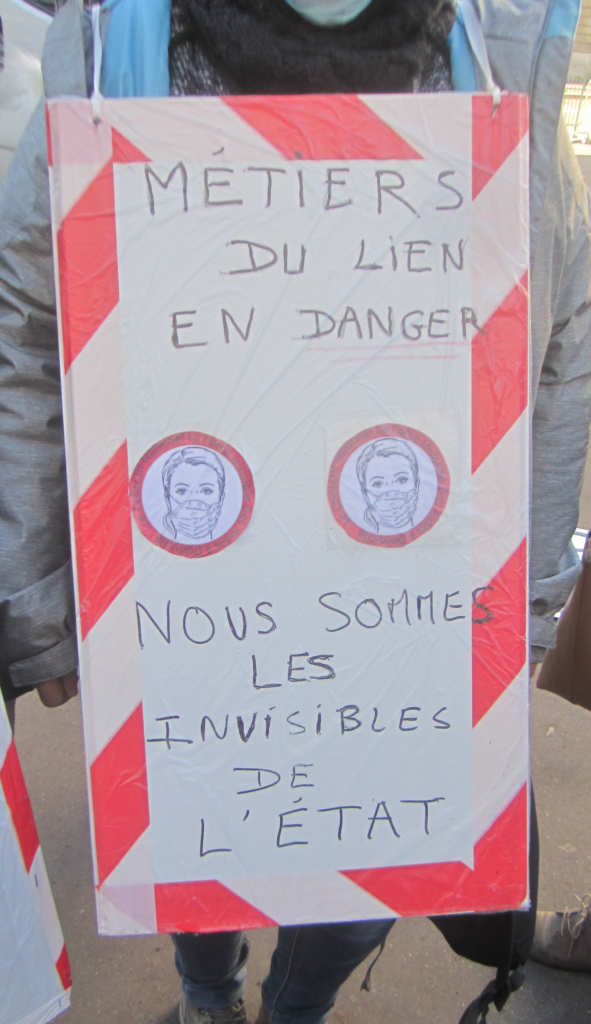 MÉTIERS
DU LIEN
EN DANGER
NOUS SOMMES
LES
INVISIBLES
DE
L'ÉTAT